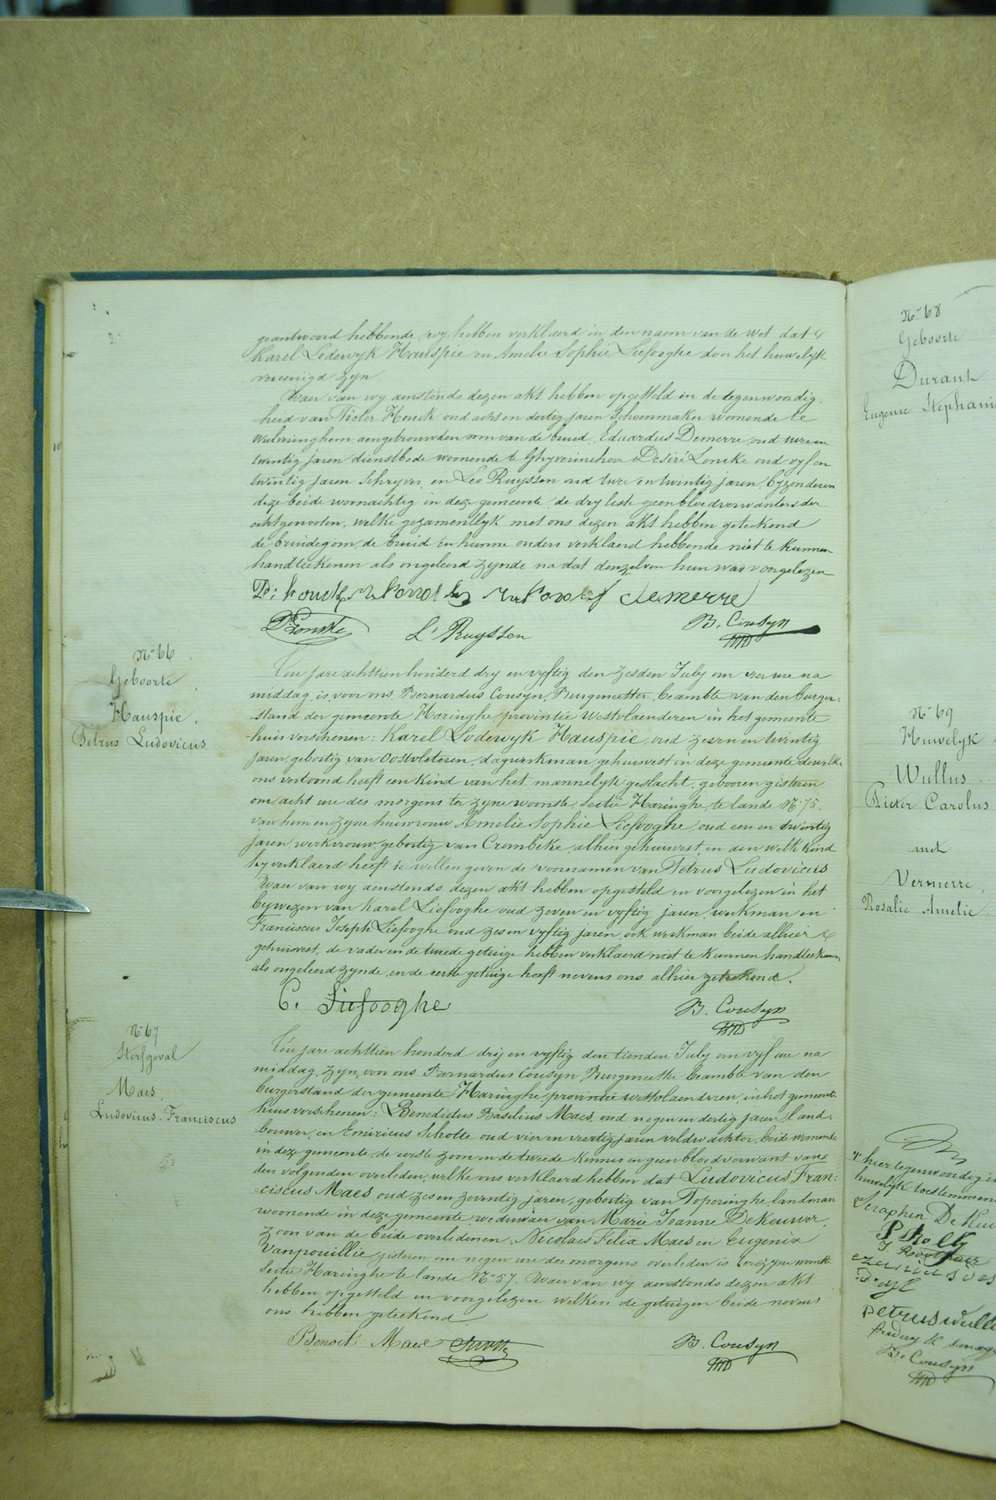 geantwoord hebbende, wy hebben verklaerd in den naem van de wet, dat
Karel Lodewyk Hauspie en Amelie Sophie Liefooghe door het huwelyk
vereenigd zyn.
Waer van wy aenstonds dezen akt hebben opgesteld in de tegenwoordig-
heid van Pieter Houck oud acht en dertig jaren Schoenmaker wonende te
aengetrouwden oom van de bruid, Eduardus Demerre oud twee en
twintig jaren dienstbode woonende te Ghyverinchove Desiré Loncke oud vyf en
twintig jaren Schryver, en Leo Ruyssen oud twee en twintig jaren, byzonderen
deze beide woonachtig in deze gemeente, de dry leste geen bloedverwanten der
echtgenooten, welke gezamentlyk met ons dezen akt hebben geteekend
de bruidegom, de bruid en hunne ouders verklaerd hebbende niet te kunnen
handteekenen als ongeleerd zynde na dat denzelven hun was voorgelezen
P: houck demerre
D Loncke L. Ruyssen B. Cousyn
N° 66
Geboorte
Hauspie,
Petrus Ludovicus
Ten jare achttien honderd dry en vyftig den zesden July om vier ure na
middag, is voor ons Bernardus Cousyn Burgmeester, beambte van den burger-
stand der gemeente Haringhe provintie Westvlaenderen in het gemeente
huis verschenen: Karel Lodewyk Hauspie, oud zes en twintig
jaren, gebortig van Oostvleteren, dagwerkman gehuisvest in deze gemeente dewelke
ons vertoond heeft een kind van het mannelyk geslacht, geboren gisteren
om acht ure des morgens ter zyne woonste Sectie Haringhe te lande N° 75.
van hem en zyne huisvrouw Amelie Sophie Liefooghe, oud een en twintig
jaren, werkvrouw, gebortig van Crombeke, alhier gehuisvest, en aen welk kind
hy verklaerd heeft te willen geven de voornamen van Petrus Ludovicus
Waer van wy aenstonds dezen akt hebben opgesteld en voorgelezen in het
bywezen van Karel Liefooghe oud zeven en vyftig jaren, werkman en
Franciscus Joseph Liefooghe oud zes en vyftig jaren ook werkman beide alhier
gehuisvest, de vader en de tweede getuige hebben verklaerd niet te kunnen handteekenen
als ongeleerd zynde, en de eerste getuige heeft nevens ons alhier geteekend.
C. Liefooghe B. Cousyn
N° 67
Sterfgeval
Maes,
Ludovicus Franciscus
Ten jare achttien honderd drij en vyftig den tienden July om vyf ure na
middag, zyn voor ons Bernardus Cousyn Burgmeester beambte van den
burgerstand der gemeente Haringhe, provintie westvlaenderen, in het gemeente
huis verschenen: Benedictus Basilius Maes, oud negen en dertig jaren land-
bouwer, en Emericus Scholte oud vier en veertig jaren veldwachter, beide woonende
in deze gemeente, de eerste zoon en de tweede kennis en geen bloedverwant van
den volgenden overleden, welke ons verklaerd hebben dat Ludovicus Fran-
ciscus Maes oud zes en zeventig jaren, gebortig van Poperinghe landman
woonende in deze gemeente, weduwaer van Marie Joanne DeKeuwer,
zoon van de beide overledenen Nicolaes Felix Maes en Eugenia
Vanpouillie, gisteren om negen ure des morgens overleden is
Sectie Haringhe te lande N° 57. Waer van wy aenstonds dezen akt
hebben opgesteld en voorgelezen welken de getuigen beide nevens
ons hebben geteekend
Benoit Maes B. Cousyn
N° 68
Geboorte
Durant
Eugenie Stephanie
N° 69
Huwelyk
Wullus
Pieter Carolus
met
Vermerre,
Rosalie Amelie
hier tegenwoordig
huwelyk toestemmen
Seraphin De
petrus wullus
B. Cousyn